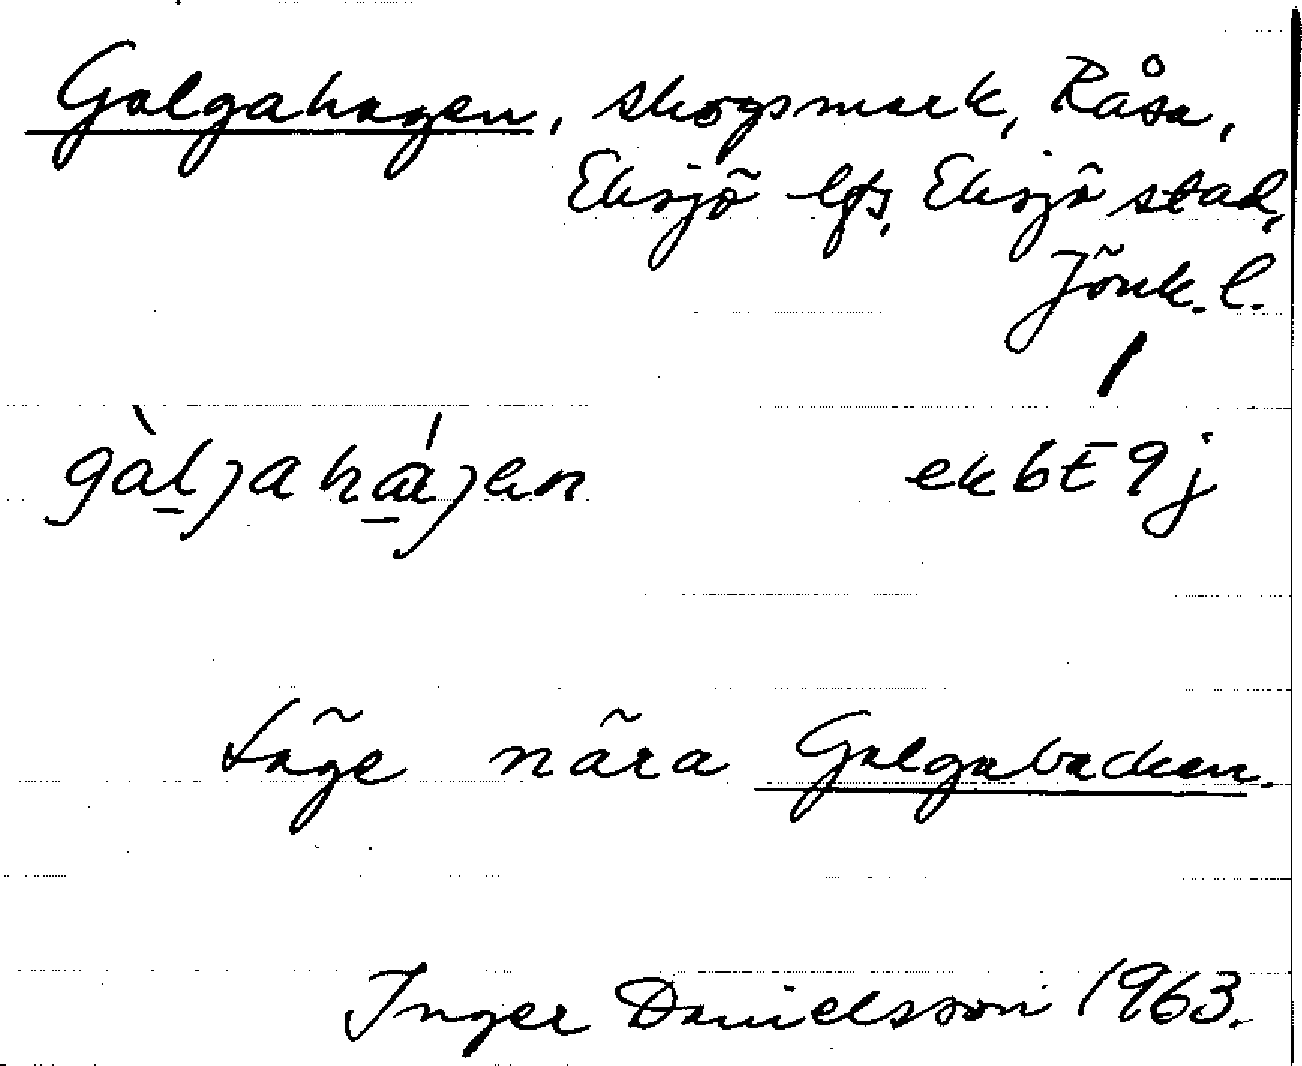 Galgahagen, skogsmark, Råsa,
Eksjö lfs, Eksjö stad,
Jönk. l.
ek 6E 9j
Läge nära Galgabacken.
Inger Danielsson 1963.